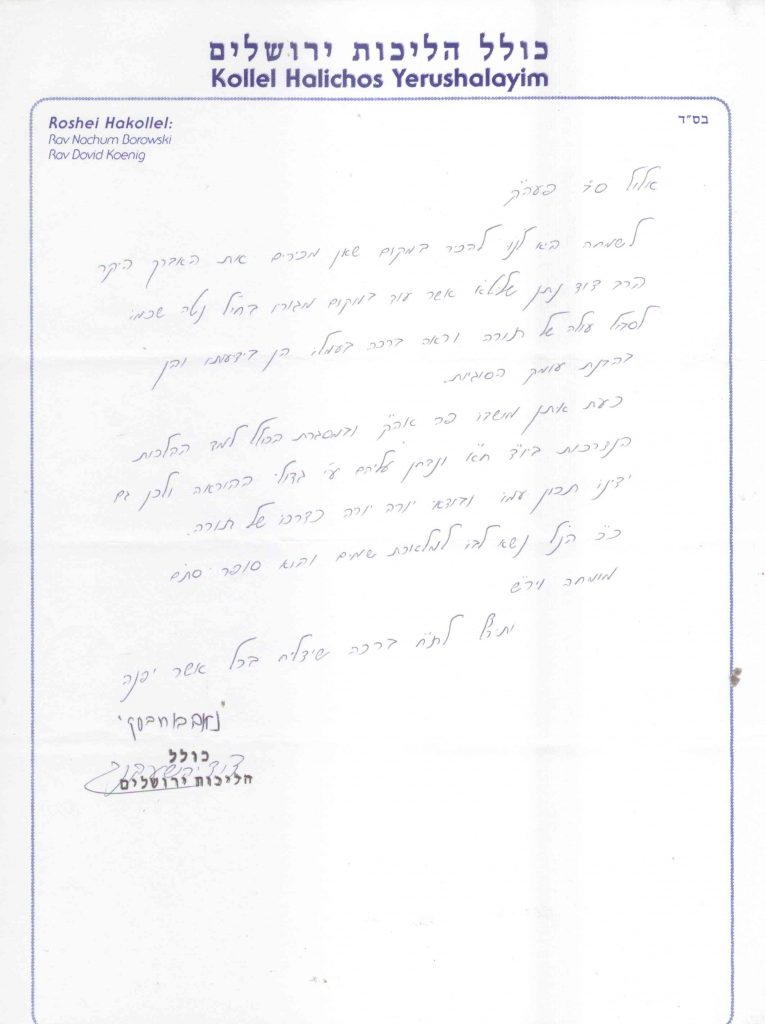 כולל הליכות ירושלים
Kollel Halichos Yerushalayim
Roshei Hakollel:
Rav Nochum Borowski
Rav Dovid Koenig
בס"ד
אלול פעה"ק
לשמחה היא לנו להכיר במקום שאין מכירים את האברך היקר
הרב דוד נתן שליט"א אשר עוד במקום מגוריו בחו"ל נטה שכמו
לסבול עולה של תורה וראה ברכה בעמלו הן בידיעתו והן
בהבנת עומק הסוגיות.
כעת איתן מושבו פה אה"ק ובמסגרת הכולל למד ההלכות
הנצרכות ביו"ד ח"א ונבחן עליהם ע"י גדולי ההוראה ולכן גם
ידינו תכון עמו ובודאי יורה יורה כדרכה של תורה.
כ"כ הנ"ל נשא לבו למלאכת שמים והוא סופר סת"ם
מומחה ויר"ש
לת"ח ברכה שיצליח בכל אשר יפנה
כולל
הליכות ירושלים